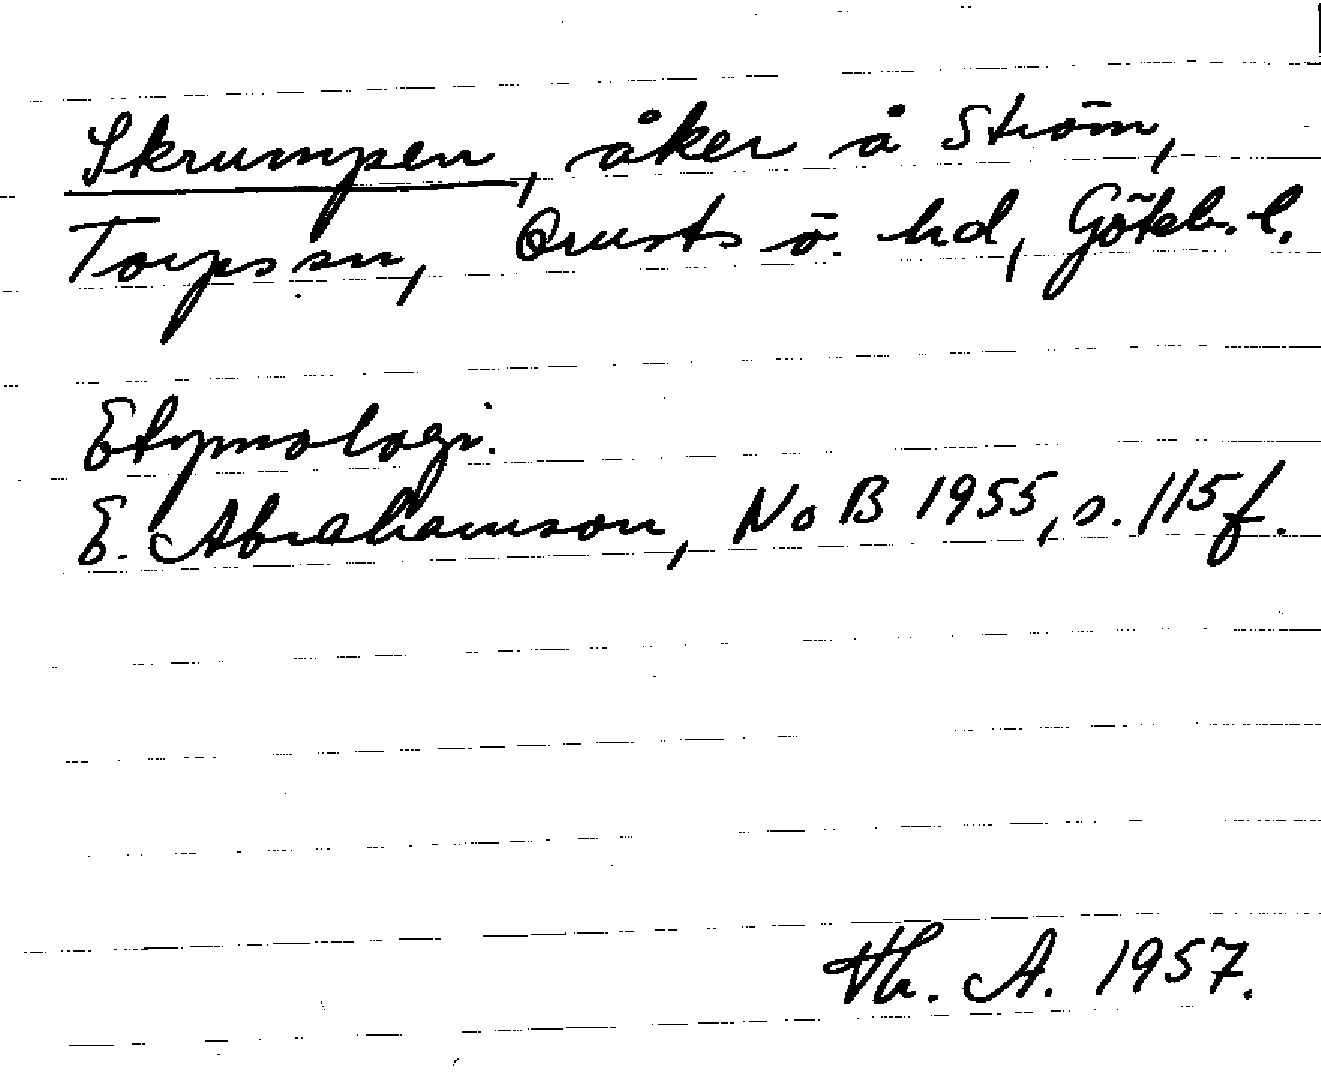 Skrumpen, åker å Ström,
Torps sn, Orusts ö. hd, Göteb. l.
Etymologi.
E. Abrahamson, NoB 1955, s. 115 f.
Th. A. 1957.